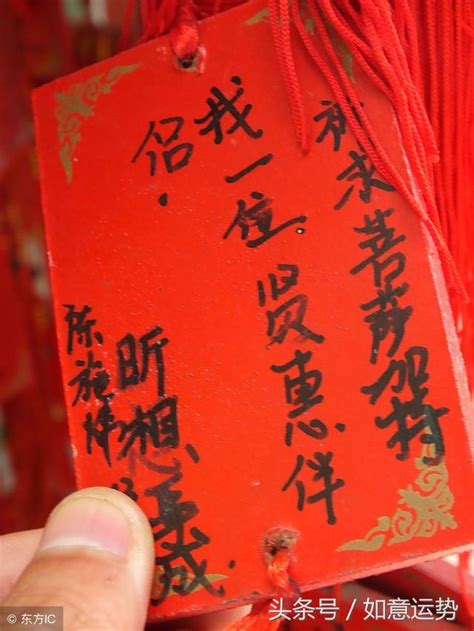 祈求菩萨加持
我一位.贤惠伴
侣.
昕想事成
陈施
© 东方IC
头条号 / 如意运势